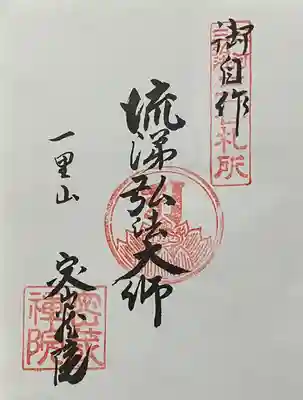 御自作
札所
流涕弘法大師
一里山
密蔵院
密蔵
禅院